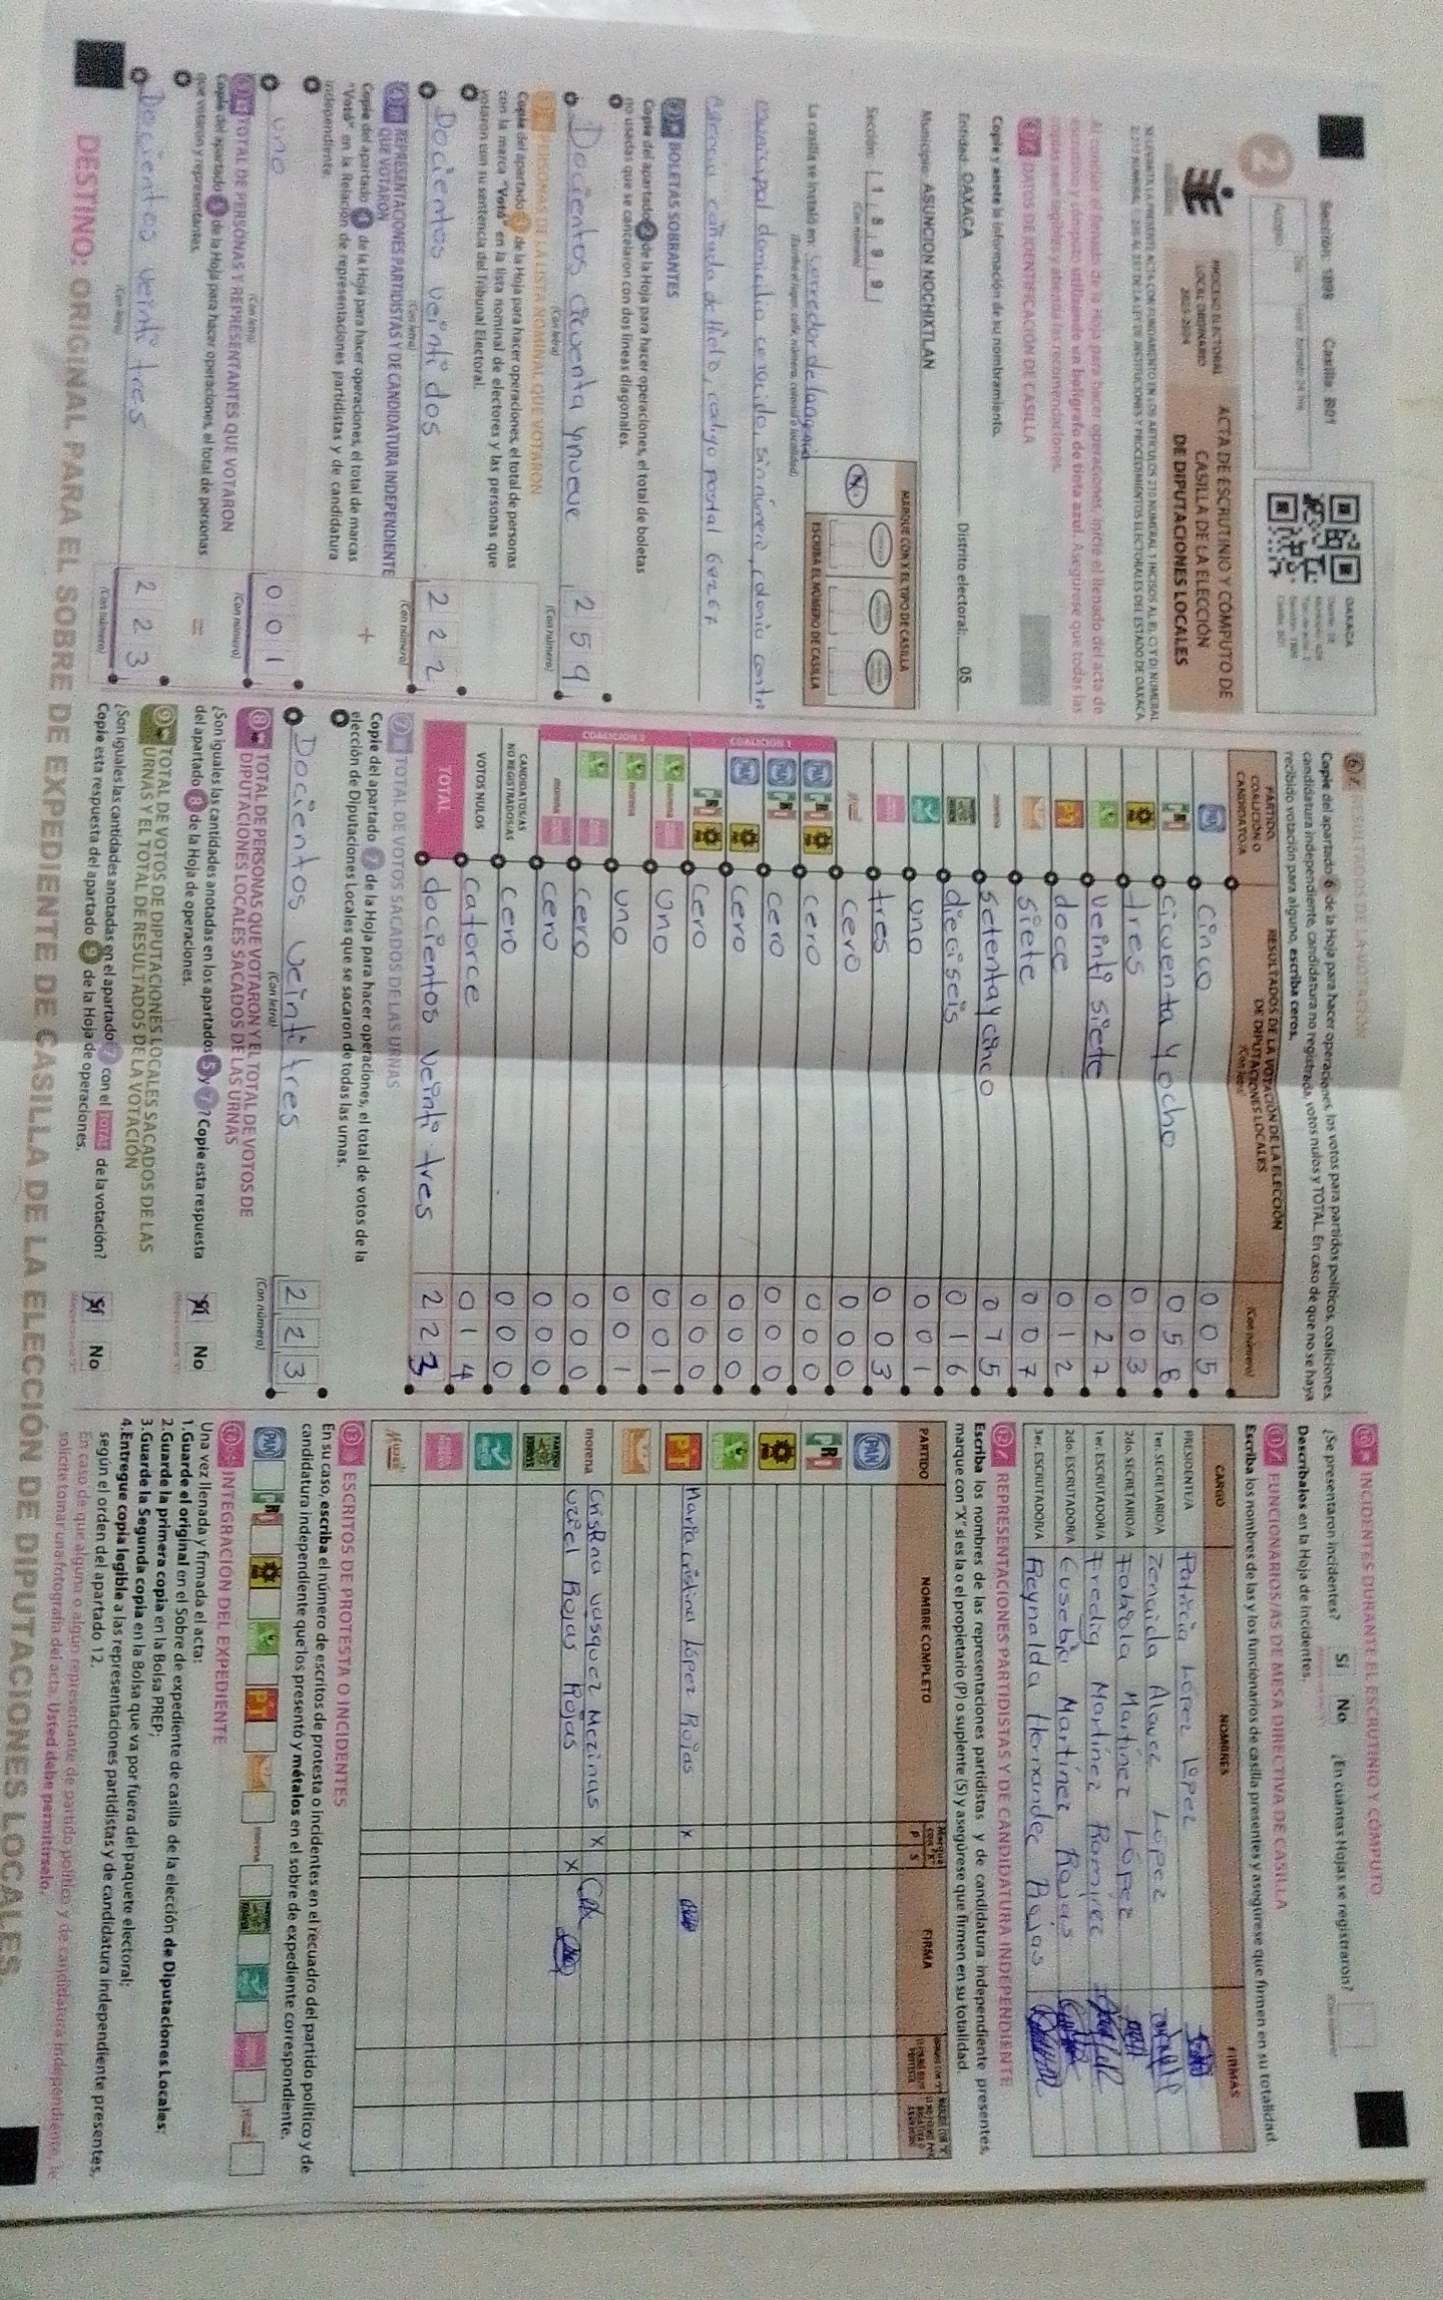 Sección: 1898 Casilla: B01
OAXACA
2
PROCESO ELECTORAL
LOCAL ORDINARIO
2023-2024
ACTA DE ESCRUTINIO Y CÓMPUTO DE
CASILLA DE LA ELECCIÓN
DE DIPUTACIONES LOCALES
Al concluir el llenado de la Hoja para hacer operaciones, inicie el llenado del acta de
escrutinio y cómputo utilizando un bolígrafo de tinta azul. Asegúrese que todas las
copias sean legibles y atienda las recomendaciones.
DATOS DE IDENTIFICACIÓN DE CASILLA
Copie y anote la información de su nombramiento.
Entidad: OAXACA Distrito electoral: 05
Municipio: ASUNCIÓN NOCHIXTLÁN
Sección: 1 8 9 9
(Con número)
MARQUE CON X EL TIPO DE CASILLA
ESCRIBA EL NÚMERO DE CASILLA
La casilla se instaló en: Corredor de la agencia
municipal domicilio conocido, sin número, colonia centro
BOLETAS SOBRANTES
Copie del apartado 2 de la Hoja para hacer operaciones, el total de boletas
no usadas que se cancelaron con dos líneas diagonales.
Docientos cicuenta y nueve 2 5 9
(Con letra) (Con número)
PERSONAS DE LA LISTA NOMINAL QUE VOTARON
Copie del apartado 3 de la Hoja para hacer operaciones, el total de personas
con la marca "Votó" en la lista nominal de electores y las personas que
votaron con su sentencia del Tribunal Electoral.
Docientos veinti dos 2 2 2
(Con letra) (Con número)
REPRESENTACIONES PARTIDISTAS Y DE CANDIDATURA INDEPENDIENTE
QUE VOTARON
Copie del apartado 4 de la Hoja para hacer operaciones, el total de marcas
"Votó" en la Relación de representaciones partidistas y de candidatura
independiente.
+
uno 0 0 1
(Con letra) (Con número)
TOTAL DE PERSONAS Y REPRESENTANTES QUE VOTARON
Copie del apartado 5 de la Hoja para hacer operaciones, el total de personas
que votaron y representantes.
=
Docientos veinti tres 2 2 3
(Con letra) (Con número)
6 RESULTADOS DE LA VOTACIÓN
Copie del apartado 6 de la Hoja para hacer operaciones, los votos para partidos políticos, coaliciones,
candidatura independiente, candidatura no registrada, votos nulos y TOTAL. En caso de que no se haya
recibido votación para alguno, escriba ceros.
PARTIDO, COALICIÓN O CANDIDATO/A
RESULTADOS DE LA VOTACIÓN DE LA ELECCIÓN
DE DIPUTACIONES LOCALES
(Con letra) (Con número)
PAN cinco 0 0 5
PRI cicuenta y ocho 0 5 8
PRD tres 0 0 3
VERDE veinti siete 0 2 7
PT doce 0 1 2
siete 0 0 7
morena setenta y cinco 0 7 5
dieciseis 0 1 6
uno 0 0 1
tres 0 0 3
Mujer cero 0 0 0
COALICIÓN 1
PAN PRI PRD cero 0 0 0
PAN PRI cero 0 0 0
PAN PRD cero 0 0 0
PRI PRD cero 0 0 0
COALICIÓN 2
VERDE morena uno 0 0 1
VERDE morena uno 0 0 1
VERDE cero 0 0 0
morena cero 0 0 0
CANDIDATOS/AS
NO REGISTRADOS/AS cero 0 0 0
VOTOS NULOS catorce 0 1 4
TOTAL docientos veinti tres 2 2 3
7 TOTAL DE VOTOS SACADOS DE LAS URNAS
Copie del apartado 7 de la Hoja para hacer operaciones, el total de votos de la
elección de Diputaciones Locales que se sacaron de todas las urnas.
Docientos veinti tres 2 2 3
(Con letra) (Con número)
8 TOTAL DE PERSONAS QUE VOTARON Y EL TOTAL DE VOTOS DE
DIPUTACIONES LOCALES SACADOS DE LAS URNAS
¿Son iguales las cantidades anotadas en los apartados 5 y 7? Copie esta respuesta
del apartado 8 de la Hoja de operaciones.
Sí No
9 TOTAL DE VOTOS DE DIPUTACIONES LOCALES SACADOS DE LAS
URNAS Y EL TOTAL DE RESULTADOS DE LA VOTACIÓN
¿Son iguales las cantidades anotadas en el apartado 7 con el TOTAL de la votación?
Copie esta respuesta del apartado 9 de la Hoja de operaciones.
Sí No
10 INCIDENTES DURANTE EL ESCRUTINIO Y CÓMPUTO
¿Se presentaron incidentes? Sí No ¿En cuántas Hojas se registraron?
Descríbalos en la Hoja de Incidentes.
11 FUNCIONARIOS/AS DE MESA DIRECTIVA DE CASILLA
Escriba los nombres de las y los funcionarios de casilla presentes y asegúrese que firmen en su totalidad.
CARGO NOMBRES FIRMAS
PRESIDENTE/A Patricia López López
1er. SECRETARIO/A Zenaida Alavez López
2do. SECRETARIO/A Fabiola Martínez López
1er. ESCRUTADOR/A Fredig Martínez Ramirec
2do. ESCRUTADOR/A Eusebio Martínez Rojas
3er. ESCRUTADOR/A Reynalda Hernandec Rojas
12 REPRESENTACIONES PARTIDISTAS Y DE CANDIDATURA INDEPENDIENTE
Escriba los nombres de las representaciones partidistas y de candidatura independiente presentes,
marque con "X" si es la o el propietario (P) o suplente (S) y asegúrese que firmen en su totalidad.
PARTIDO NOMBRE COMPLETO P S FIRMA
PAN
PRI
PRD
VERDE
PT María cristina López Rojas X
morena Cristina Vásquez Mezinas X
Uziel Rojas Rojas X
Mujer
13 ESCRITOS DE PROTESTA O INCIDENTES
En su caso, escriba el número de escritos de protesta o incidentes en el recuadro del partido político y de
candidatura independiente que los presentó y métalos en el sobre de expediente correspondiente.
PAN PRI PRD VERDE PT morena
14 INTEGRACIÓN DEL EXPEDIENTE
Una vez llenada y firmada el acta:
1.Guarde el original en el Sobre de expediente de casilla de la elección de Diputaciones Locales;
2.Guarde la primera copia en la Bolsa PREP;
3.Guarde la Segunda copia en la Bolsa que va por fuera del paquete electoral;
4.Entregue copia legible a las representaciones partidistas y de candidatura independiente presentes,
según el orden del apartado 12.
En caso de que alguna o algún representante de partido político y de candidatura independiente, le
solicite tomar una fotografía del acta. Usted debe permitírselo.
DESTINO: ORIGINAL PARA EL SOBRE DE EXPEDIENTE DE CASILLA DE LA ELECCIÓN DE DIPUTACIONES LOCALES